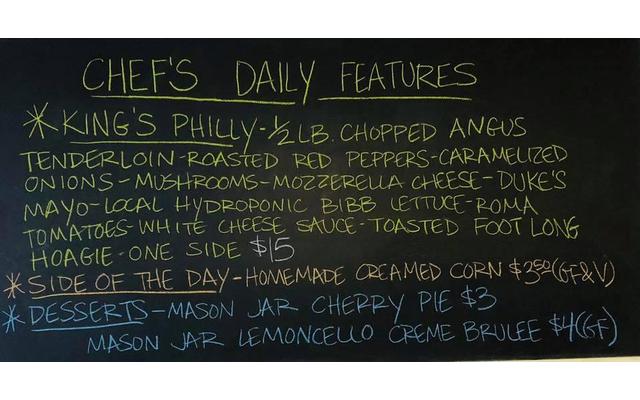 CHEF'S DAILY FEATURES
* KING'S PHILLY-1/2 LB. CHOPPED ANGUS
TENDERLOIN-ROASTED RED PEPPERS-CARAMELIZED
ONIONS-MUSHROOMS-MOZZERELLA CHEESE-DUKE'S
MAYO-LOCAL HYDROPONIC BIBB LETTUCE-ROMA
TOMATOES-WHITE CHEESE SAUCE-TOASTED FOOT LONG
HOAGIE-ONE SIDE $15
* SIDE OF THE DAY-HOMEMADE CREAMED CORN $3.50 (GF&V)
* DESSERTS-MASON JAR CHERRY PIE $3
MASON JAR LEMONCELLO CREME BRULEE $4 (GF)